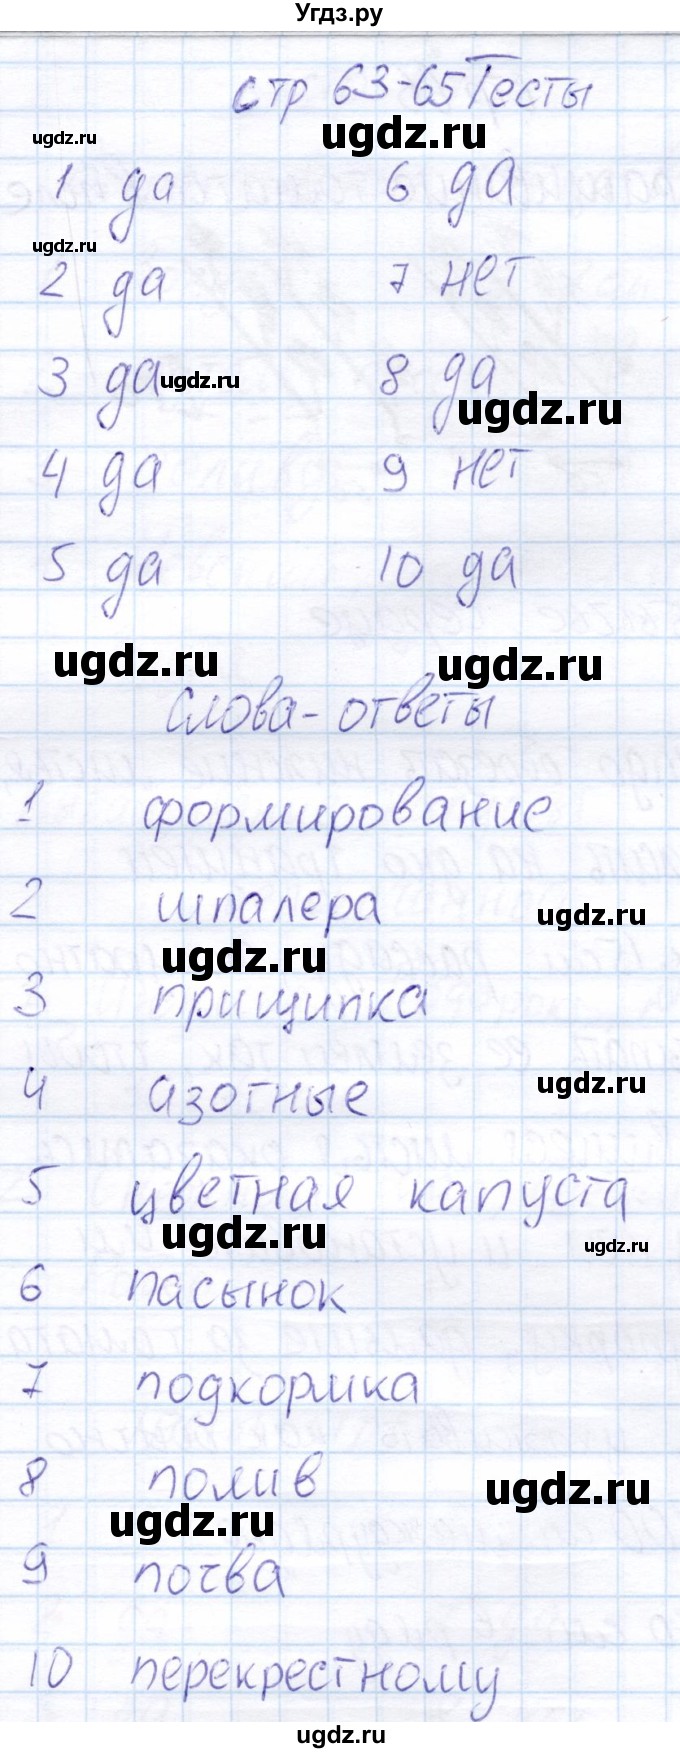 Угдз.ру
стр 63-65 Тесты
ugdz.ru
ugdz.ru
1 да 6 да
ugdz.ru
2 да 7 нет
3 да 8 да
ugdz.ru
ugdz.ru
4 да 9 нет
5 да 10 да
ugdz.ru ugdz.ru
слова-ответы
1 формирование
2 шпалера
ugdz.ru
ugdz.ru
3 прищипка
4 азотные
ugdz.ru
5 цветная капуста
ugdz.ru
ugdz.ru
6 пасынок
7 подкормка
8 полив
ugdz.ru
ugdz.ru
9 почва
10 перекрестному
ugdz.ru